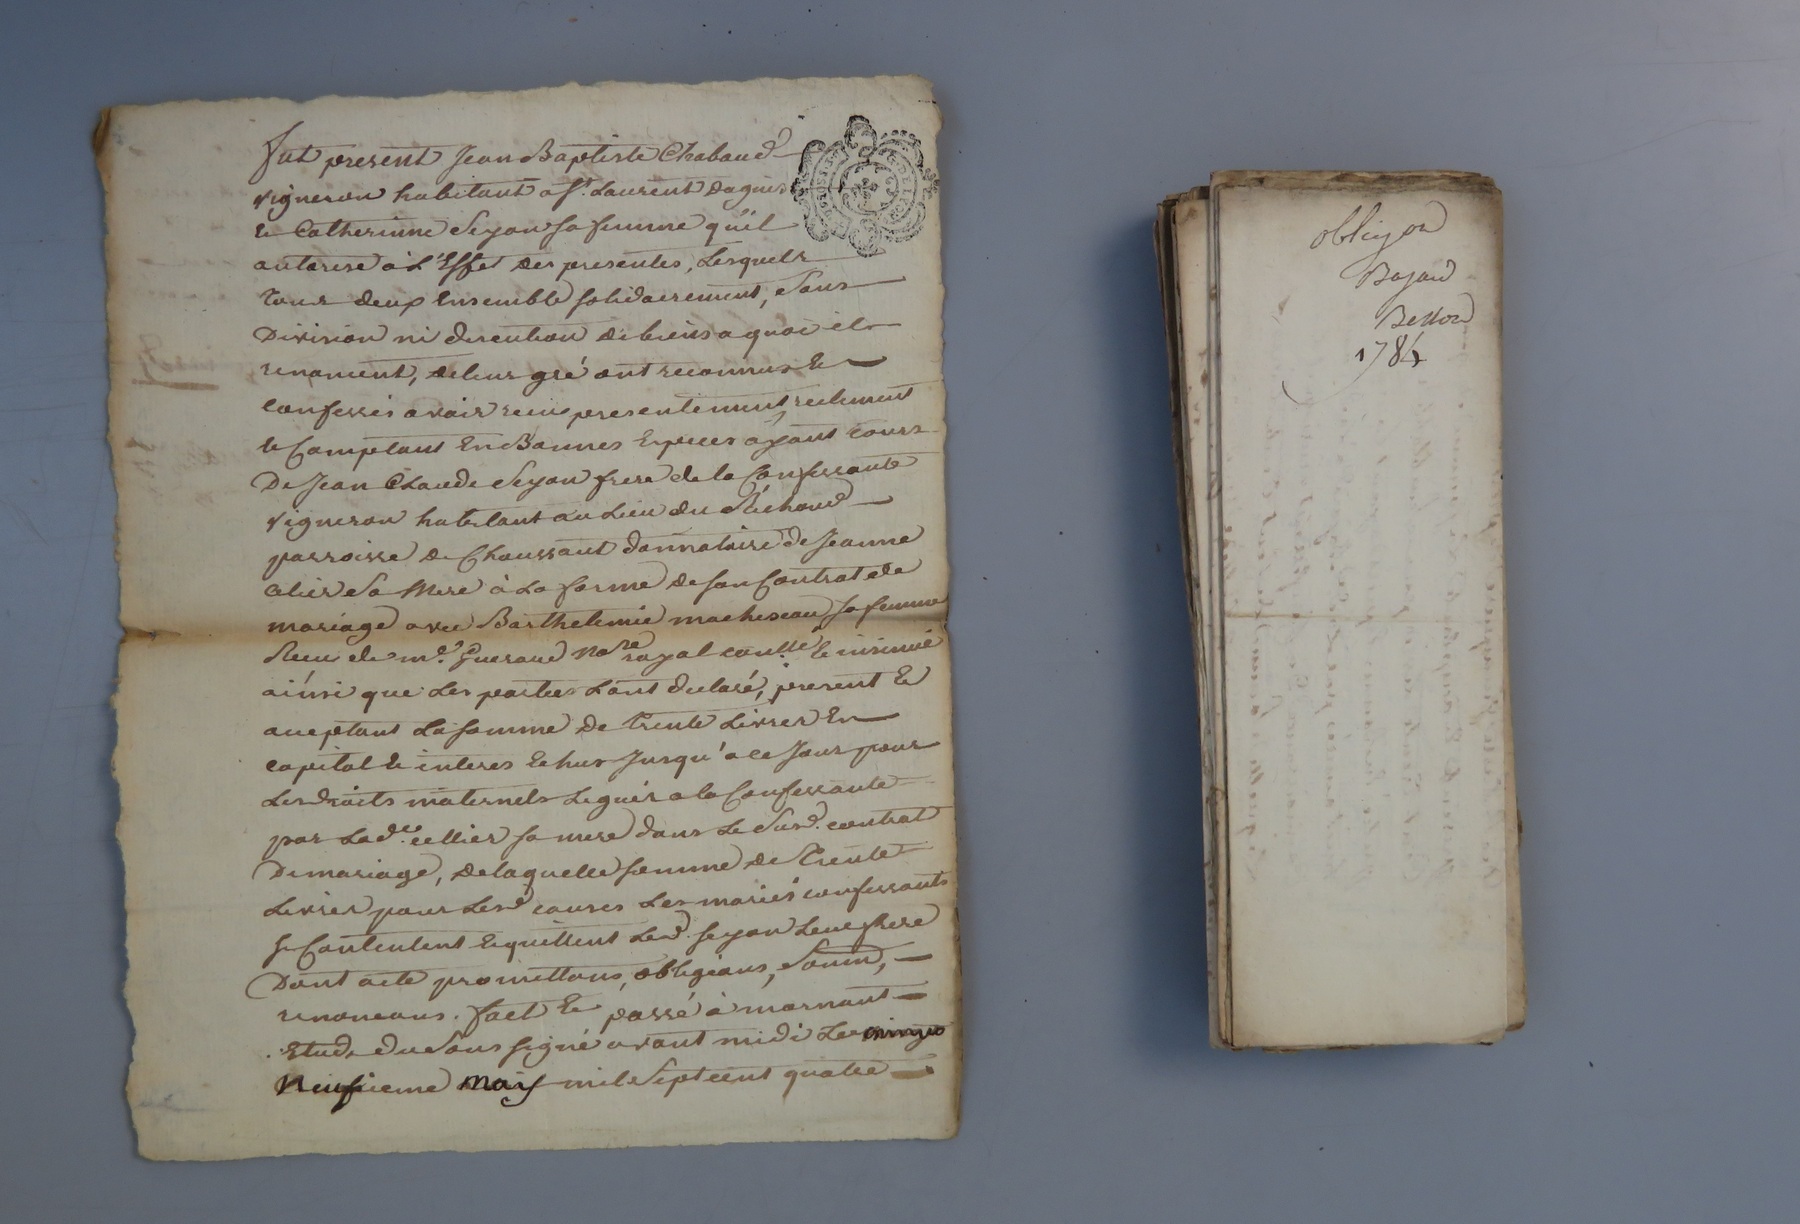 fut present Jean Baptiste Chabaud
vigneron habitant a St. Laurent Dagnis
et Catherinne Seyon sa femme qu'il
autorise a L'Effet des presentes, Lesquels
tous deux Ensemble solidairement, Sans
Division ni discution de biens a quoi ils
renoncent, de leur gré ont reconnus et
confessés avoir recu presentement, reelement
et Comptant En Bonnes Especes ayant cours
De Jean Claude Seyon frere de la Confessante
vigneron habitant au Lieu du Richoud
parroisse de Chaussant donnataire de Jeanne
Celier Sa Mere à La forme de son Contrat de
mariage avec Barthelemie sa femme
Recu de me. Gueraud Nore royal et insinué
ainsi que Les parties L'ont declaré, present et
aceptant La somme de trente Livres En
capital et interes Echus Jusqu'a ce Jour pour
Les droits maternels Legués a la Confessante
par Lade. cellier sa mere dans Le Susd. contrat
De mariage, de laquelle somme de Trente
Livres pour Lesd. causes Les mariés confessants
se Contentent et quittent Led. seyon Leur frere
Dont acte promettons, obligeons, Soum,
renoncans. fait Et passé à mornant
Etude du Sous signé avant midi Le vingt
Neufieme may mil Sept cent quatre
obligon
Bajard
Besson
1784